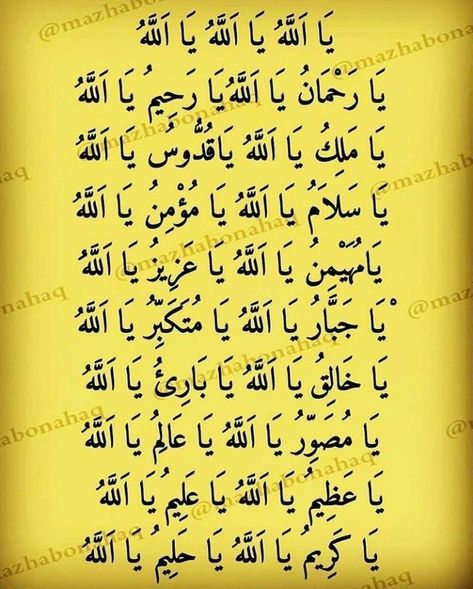 يَا اَللَّهُ يَا اَللَّهُ يَا اَللَّهُ
يَا رَحْمَانُ يَا اَللَّهُ يَا رَحِيمُ يَا اَللَّهُ
يَا مَلِكُ يَا اَللَّهُ يَاقُدُّوسُ يَا اَللَّهُ
يَا سَلَامُ يَا اَللَّهُ يَا مُؤْمِنُ يَا اَللَّهُ
يَامُهَيْمِنُ يَا اَللَّهُ يَا عَزِيزُ يَا اَللَّهُ
يَا جَبَّارُ يَا اَللَّهُ يَا مُتَكَبِّرُ يَا اَللَّهُ
يَا خَالِقُ يَا اَللَّهُ يَا بَارِئُ يَا اَللَّهُ
يَا مُصَوِّرُ يَا اَللَّهُ يَا عَالِمُ يَا اَللَّهُ
يَا عَظِيمُ يَا اَللَّهُ يَا عَلِيمُ يَا اَللَّهُ
يَا كَرِيمُ يَا اَللَّهُ يَا حَلِيمُ يَا اَللَّهُ
@mazhabonahaq